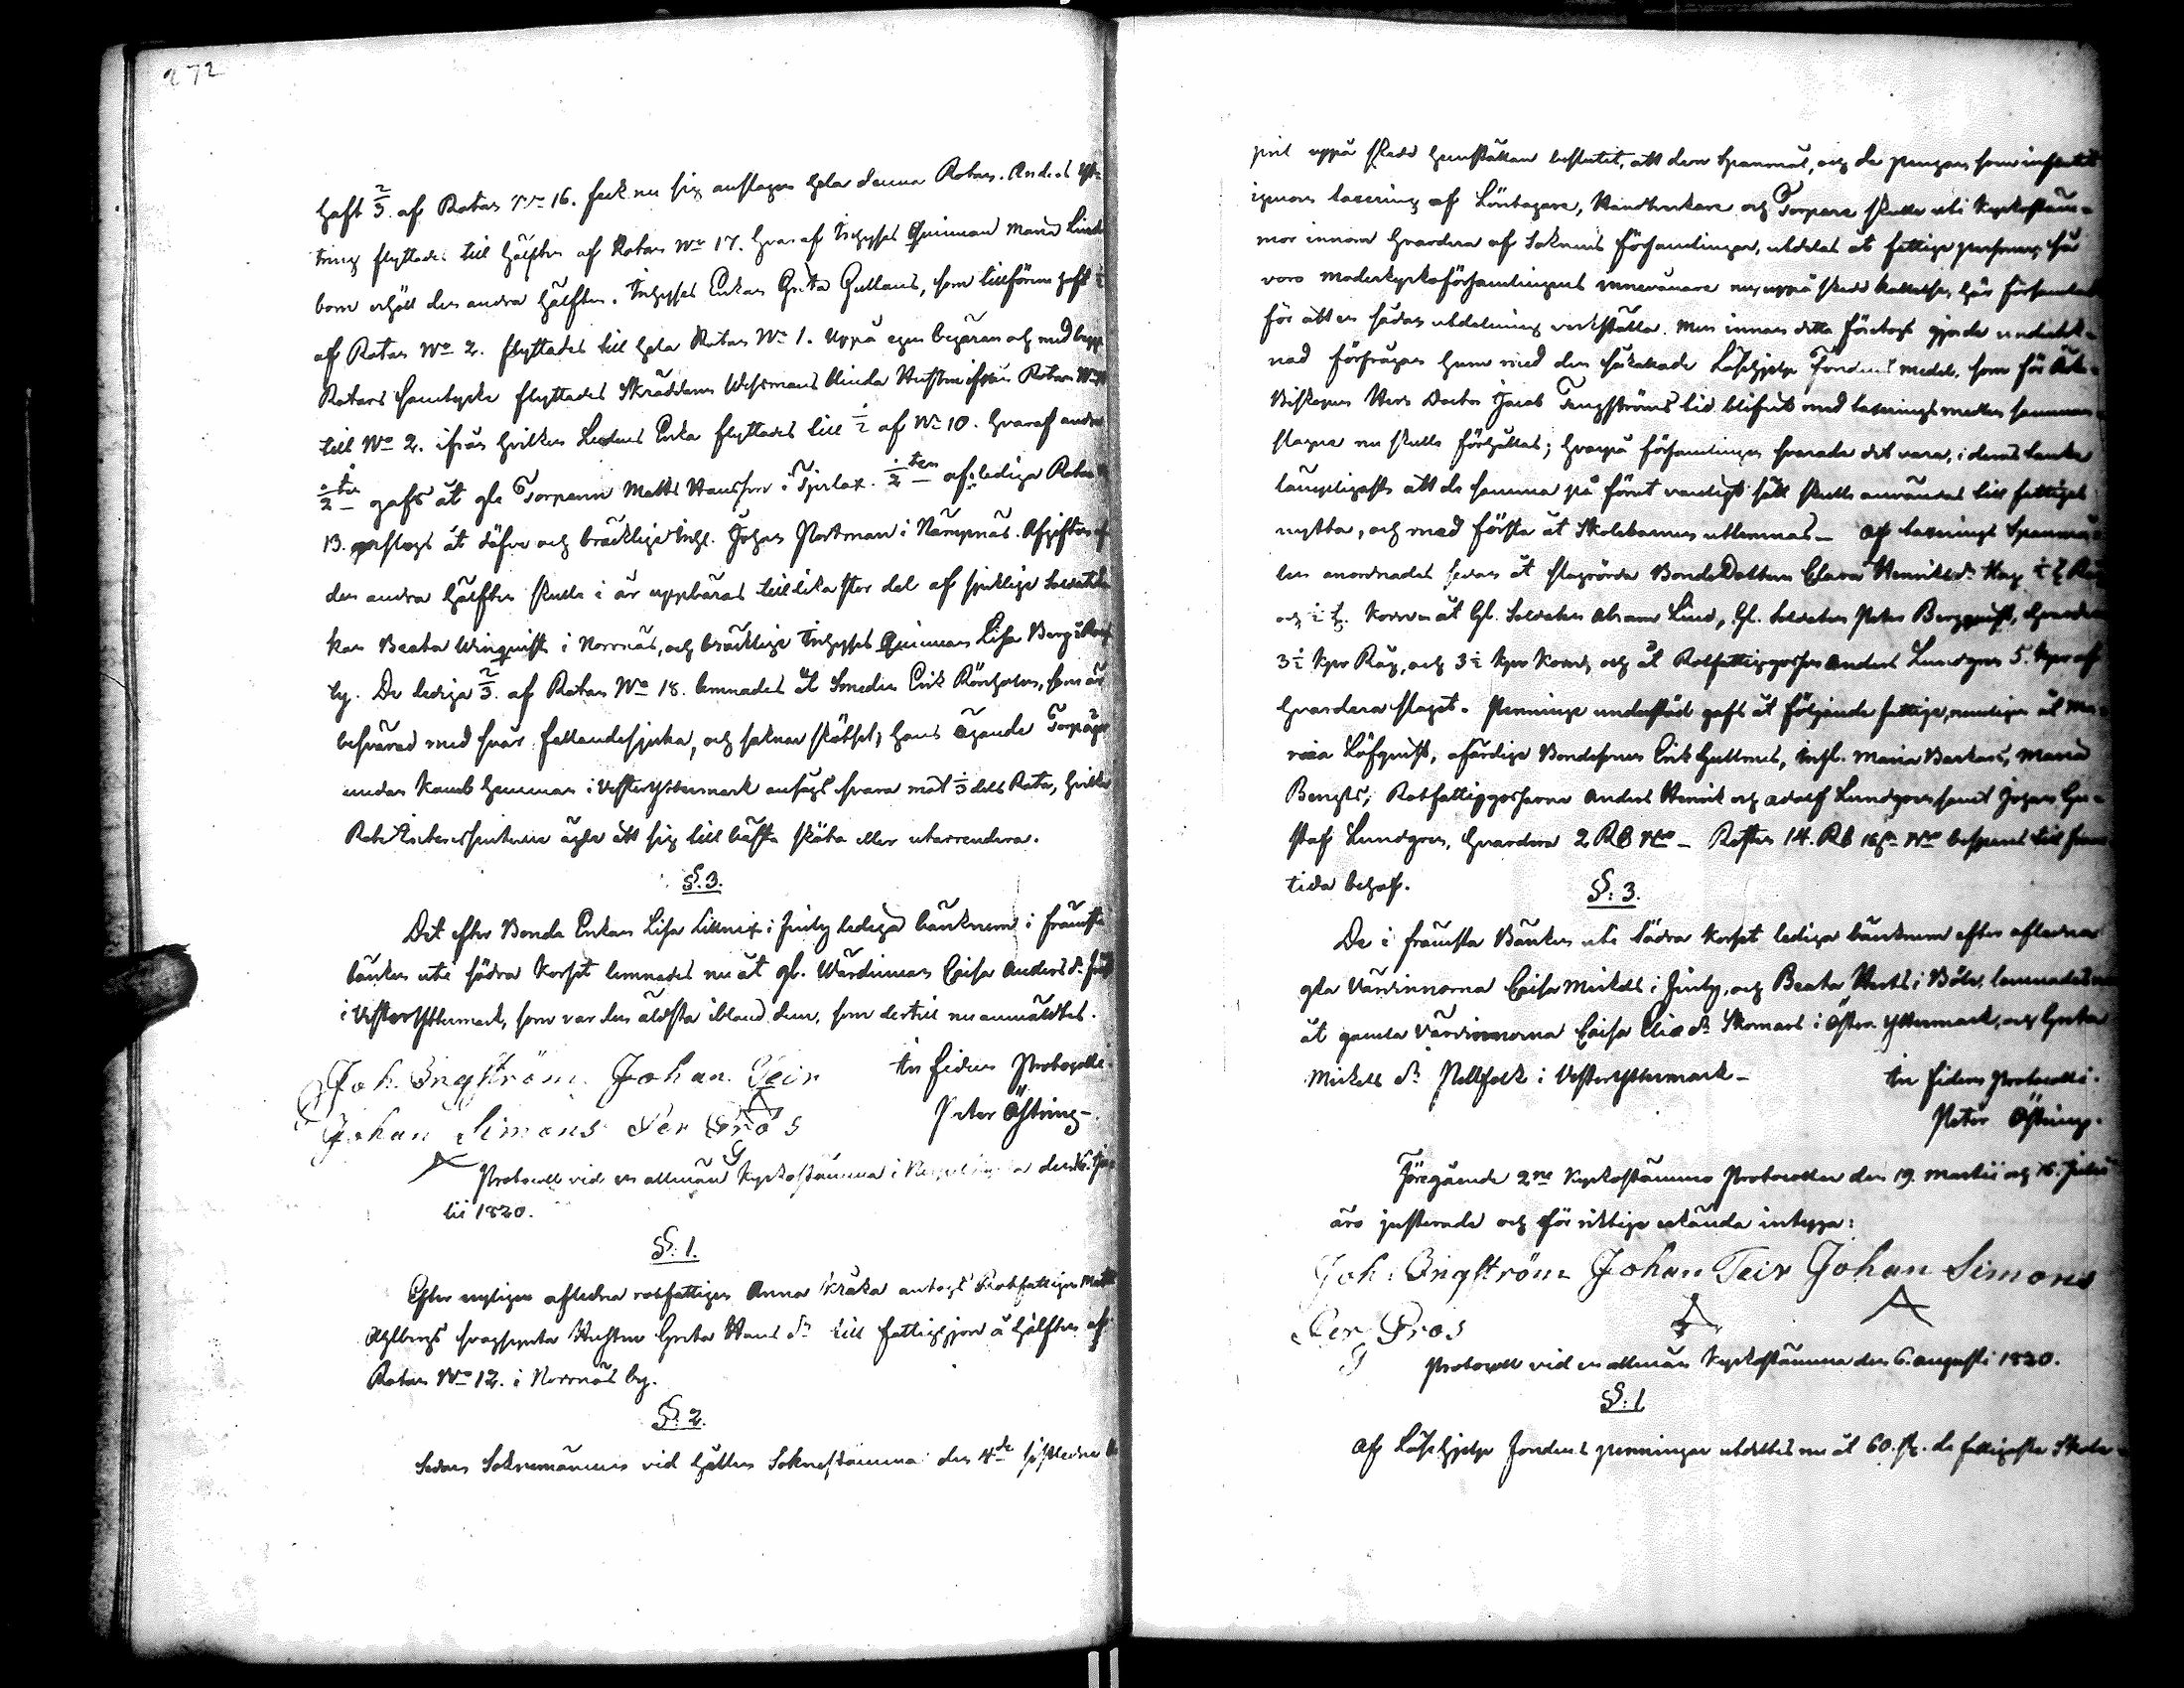 272
haft 2/3 af Rotan No 16. feck nu sig anslagen hela denna Rotan. Anders
tring flyttades till hälften af Rotan No 17. hvaraf Inhyses Quinnan Maria Lind
bom erhöll den andra hälften. Inhyses Enkan Greta Gullans, som tillförne haft
af Rotan No 2. flyttades till hela Rotan No 1. Uppå egen begäran och med
Rotans samtycke flyttades Skräddaren Wesmans blinda Hustru ifrån Rotan No
till No 2. ifrån hvilken Ledens Enka flyttades till 1/2 af No 10. hvaraf andra
1/2 ten gafs åt gle Torparen Matts Hansson i Tjerlax. 1/2 ten af lediga Rotan
13. gafs åt döfve och bräcklige Inhs. Johan Portman i Nämpnäs. Afgiften af
den andra hälften skulle i år uppbäras till lika stor del af sjuklige Soldat En
kan Beata Winquist i Norrnäs, och bräcklige Inhyses Quinnan Lisa Berg i
by. De lediga 2/3 af Rotan No 18. lemnades åt Smeden Erik Rönholm, som är
besvärad med svår fallandesjuka, och saknar skötsel; hans ägande Torpäger
under Kamb hemman i Vesteryttermark ansågs svara mot 1/3 dels Rota, hvilke
Rote Interessenterne ägde att sig till bästa sköta eller utarrendera.
§. 3.
Det efter Bonde Enkan Lisa Lillnix i Finby lediga bänkrum i främsta
bänken uti södra Korset lemnades nu åt gl. Wärdinnan Caisa Anders dr
i Vesteryttermark, som var den äldsta ibland dem, som dertill nu anmäldtes.
In fidem Protocolli.
Joh. Engström. Johan Teir
Peter Östring.
Johan Simons Per Gros
Protocoll vid en allmän Kyrkostämma i den 16. Ju
lii 1820.
§. 1.
Efter nyligen afledna rotfattigen Anna Kråka antogs Rotfattigen Matts
Ahlbergs svagsynta Hustru Greta Hans dr till fattighjon å hälften af
Rotan No 12. i Norrnäs by.
§. 2.
Sedan Soknemännen vid hållen Soknestämma den 4de sistledne
pril uppå skedd hemställan beslutit, att den Spannmål, och de pengar som influtit
igenom taxering af Löntagare, Handtverkare och Torpare skulle uti Kyrkostäm-
mor innom hvardera af Soknens församlingar, utdelas åt fattige personer; så
voro Moderkyrkoförsamlingens innevånare nu, uppå skedd kallelse, här församlade
för att en sådan utdelning verkställa. Men innan detta företogs gjorde undertek-
nad förfrågan huru med den så kallade Läsehjelps Fondens medel, som för Ärke-
Biskopen Herr Doctor Jacob Tengströms tid blifvit med taxeringsmedlen samman-
slagne nu skulle förhållas; hvarpå församlingen svarade det vara, i deras tanke
lämpligaste att de samma på förut vanligt sätt skulle användas till fattiges
nytta, och med första åt Skolebarnen utlemnas. Af taxerings Spannmå
len anordnades sedan åt slagrörda Bonde Dottren Clara Henriks dr Hag
och Korn åt Gl. Soldaten Abram Lind, Gl. Soldaten Peter Bergquist, hvardera
3 1/2 kpr Råg, och 3 1/2 kpr Korn, och åt Rotfattiggossen Anders Lundgren 5. kpr af
hvardera slaget. Penninge understöd gafs åt följande fattige, nemligen åt Ma-
ria Löfquist, ofärdige Bondesonen Erik Gullmes, Inhs. Maria Barkars, Maria
Bengts, Rotfattiggossarne Anders Henrik och Adolf Lundgren samt Johan Gu-
staf Lundgren, hvardera 2 RB Rgs. Resten 14. RB 16 s. besparas till fram
tida behof.
§. 3.
De i främsta Bänken uti Södra Korset lediga bänkrum efter afledna
gla Värdinnorna Caisa Mickels i Finby, och Beata Herts i Böle, lemnades nu
åt gamla Värdinnorna Caisa Elia dr Skomars i Öster Yttermark, och Greta
Mickels dr Pellfolk i Vesteryttermark.
In fidem Protocolli.
Peter Östring.
Föregående 2ne Kyrkostämmo Protocoller den 19. Martii och 16. Julii
äro justerade och för riktige erkända intyga:
Joh: Engström Johan Teir Johan Simons
Per Gros
Protocoll vid en allmän Kyrkostämma den 6. Augusti 1820.
§. 1.
Af Läsehjelps Fondens penningar utdeltes nu åt 60. st. de fattigaste Skole-